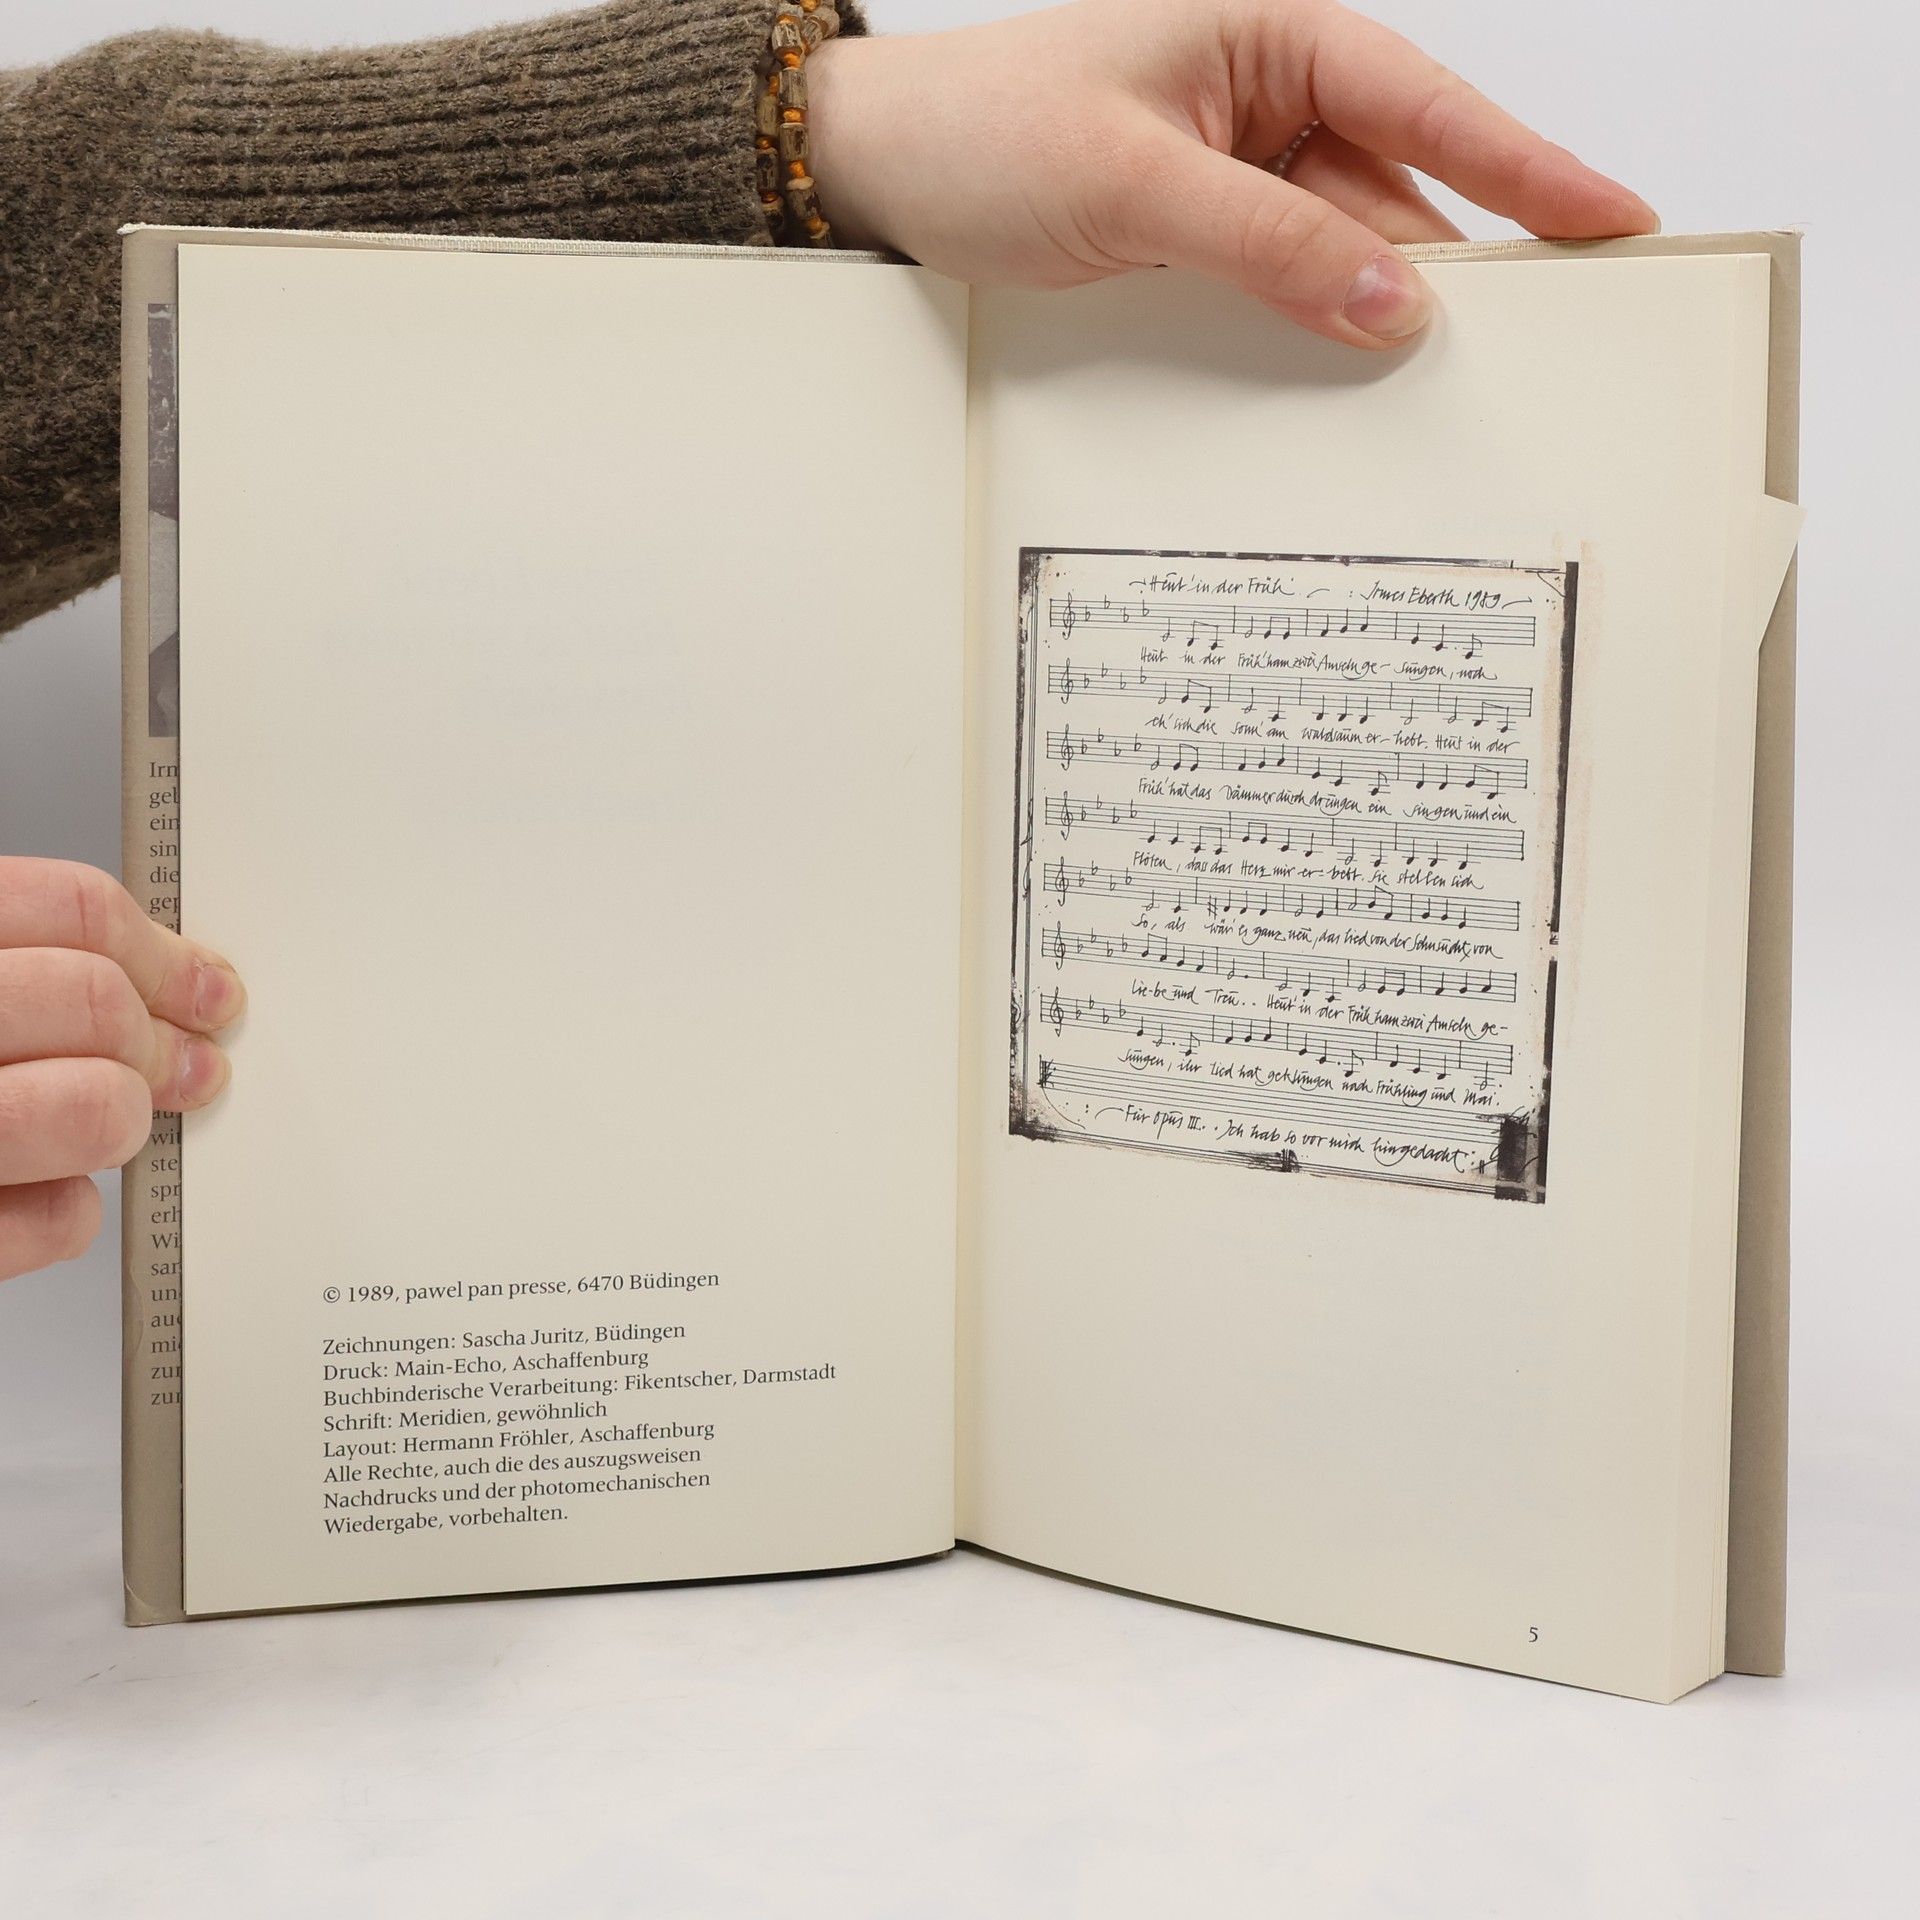 Irm
gel
ein
sin
die
gep
au
wit
ste
spr
erh
Wi
san
un
auc
mi
zur
zur
© 1989, pawel pan presse, 6470 Büdingen
Zeichnungen: Sascha Juritz, Büdingen
Druck: Main-Echo, Aschaffenburg
Buchbinderische Verarbeitung: Fikentscher, Darmstadt
Schrift: Meridien, gewöhnlich
Layout: Hermann Fröhler, Aschaffenburg
Alle Rechte, auch die des auszugsweisen
Nachdrucks und der photomechanischen
Wiedergabe, vorbehalten.
Heut' in der Früh' : Irmes Eberth 1989
Heut in der Früh' ham zwei Amseln ge- sungen, noch
eh' sich die Sonn' am Waldsaum er- hebt. Heut in der
Früh' hat das Dämmer durchdrungen ein Singen und ein
Flöten, dass das Herz mir er- bebt. Sie stellen sich
so, als wär' es ganz neu, das Lied von der Sehnsucht, von
Lie-be und Treu.. Heut' in der Früh ham zwei Amseln ge-
sungen, ihr Lied hat geklungen nach Frühling und Mai.
Für Opus III.. Ich hab so vor mich hingedacht
5